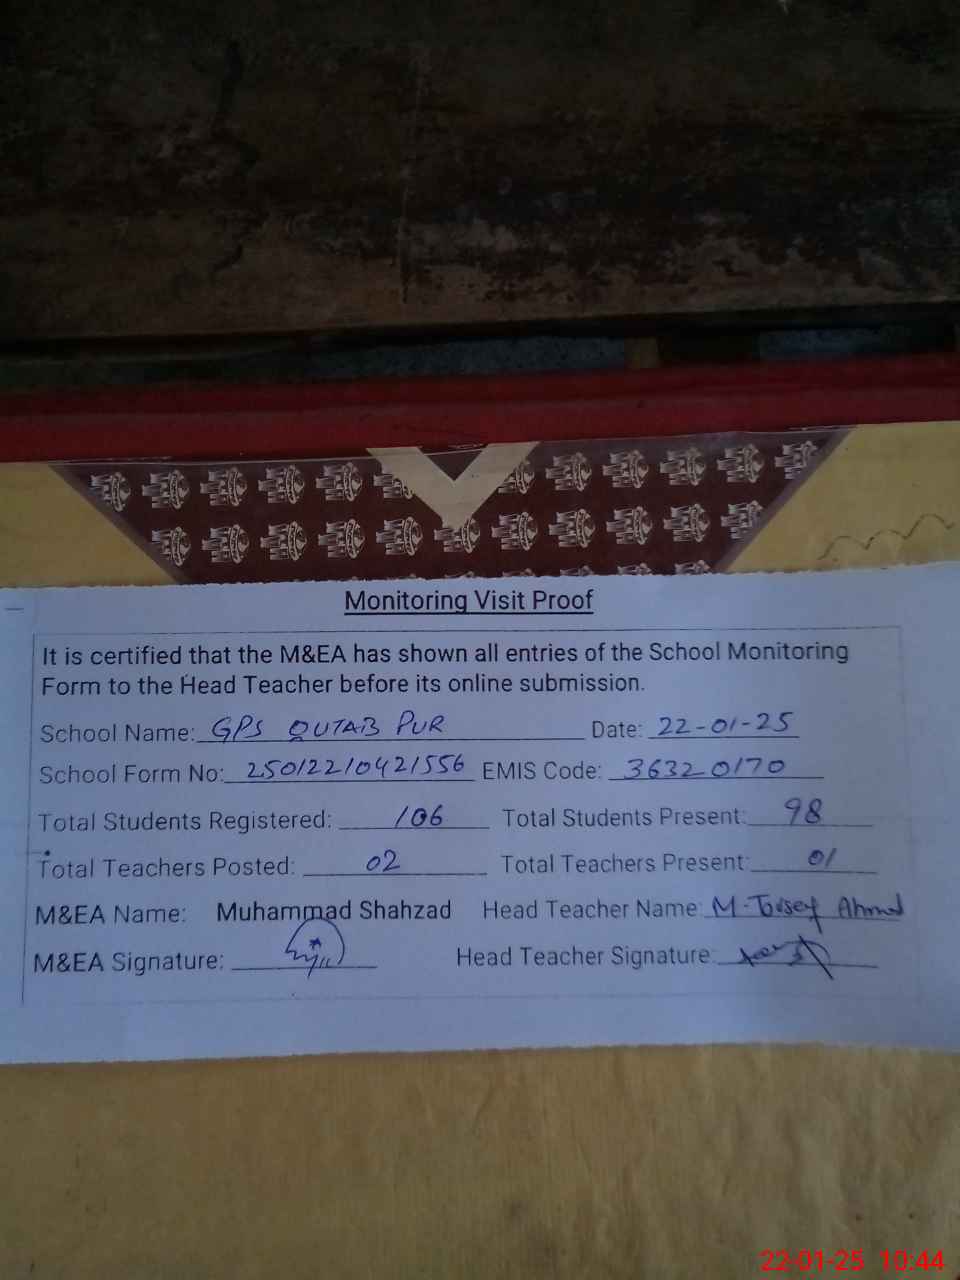 Monitoring Visit Proof
It is certified that the M&EA has shown all entries of the School Monitoring
Form to the Head Teacher before its online submission.
School Name: GPS QUTAB PUR Date: 22-01-25
School Form No: 25012210421556 EMIS Code: 36320170
Total Students Registered: 106 Total Students Present: 98
Total Teachers Posted: 02 Total Teachers Present: 01
M&EA Name: Muhammad Shahzad Head Teacher Name: M. Ahmad
M&EA Signature: Head Teacher Signature:
22-01-25 10:44